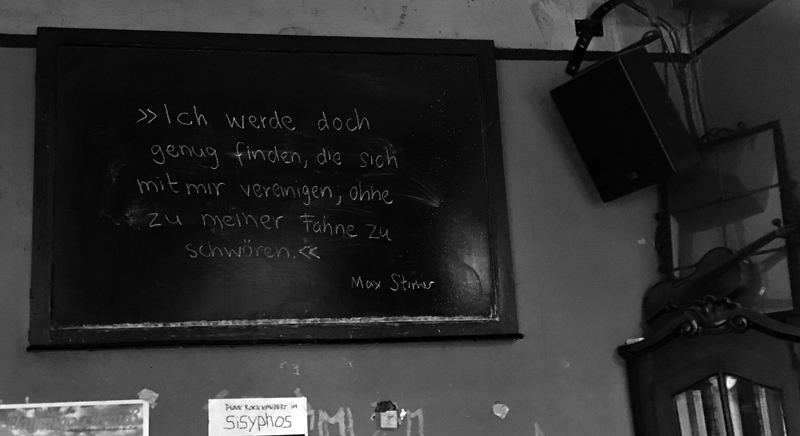 »Ich werde doch
genug finden, die sich
mit mir vereinigen, ohne
zu meiner Fahne zu
schwören.«
Max Stirner
PUNK ROCK KONZERT im
SiSyPhOS